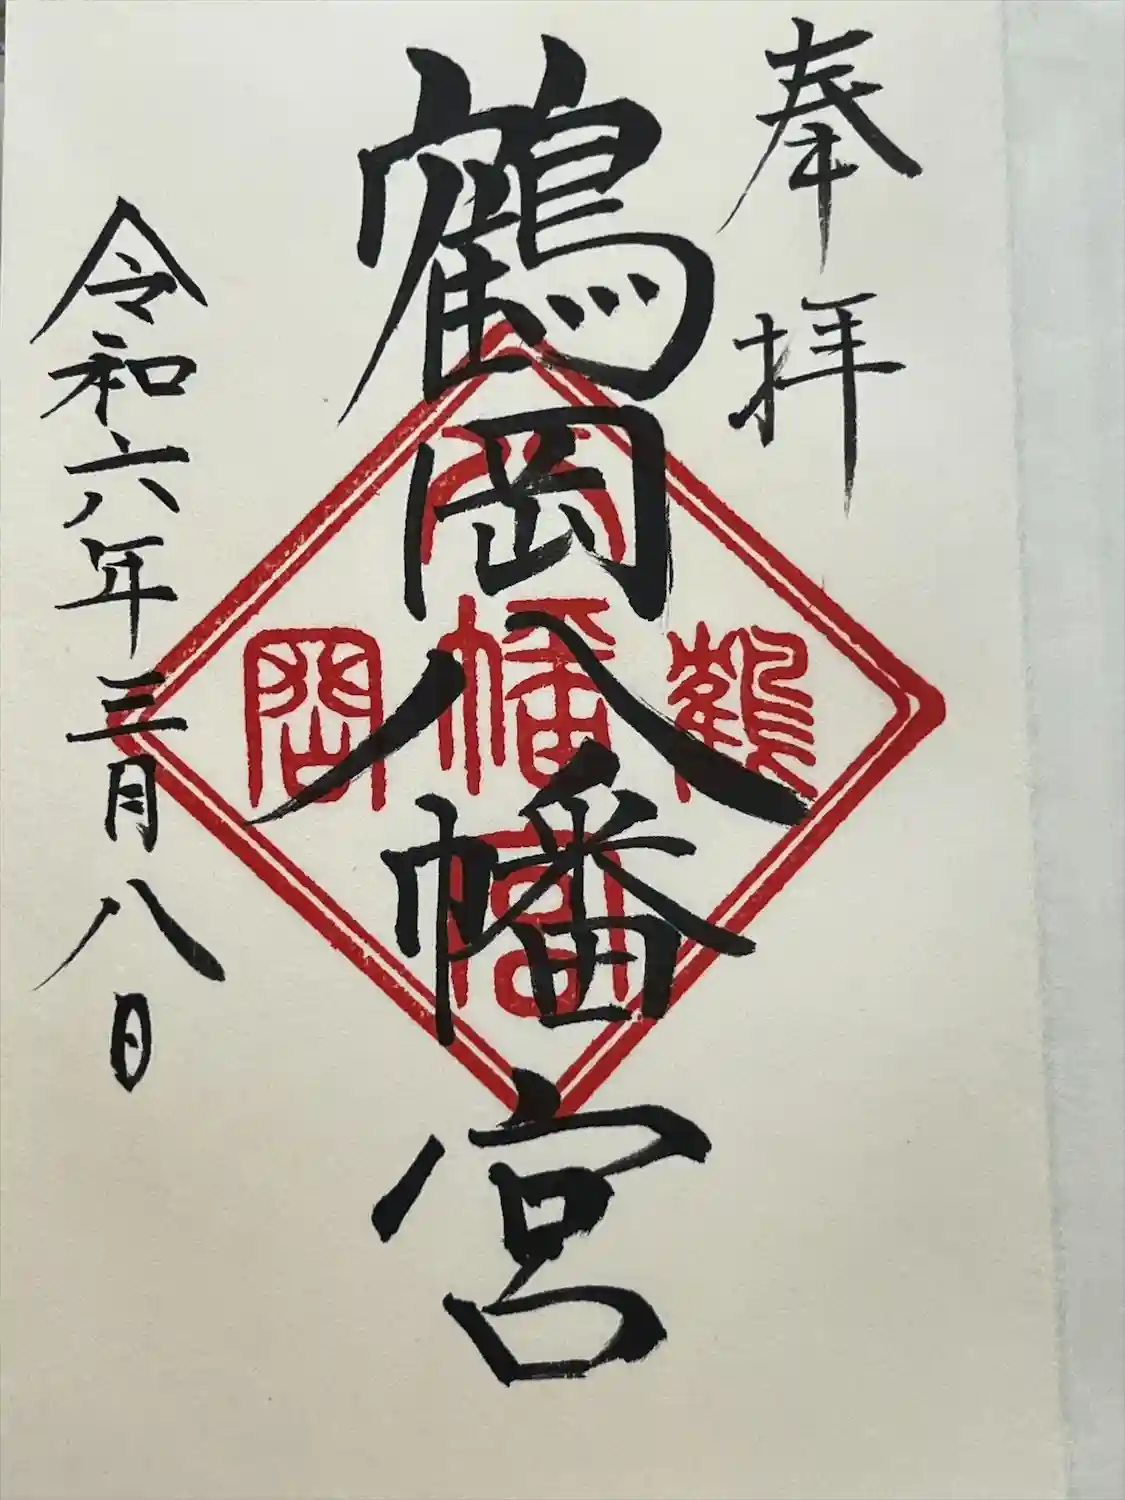 奉拝
鶴岡八幡宮
鶴
八
幡
宮
岡
令和六年三月八日